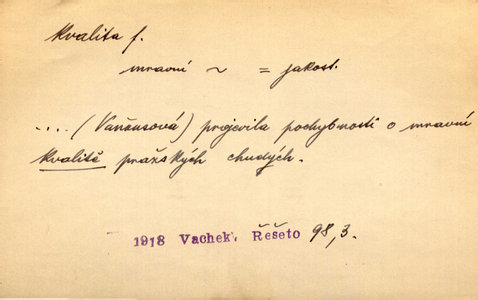 kvalita f.
mravní ~ = jakost.
.... (Vaněusová) projevila pochybnosti o mravní
kvalitě pražských chudých.
1918 Vachek, Řešeto 98,3.